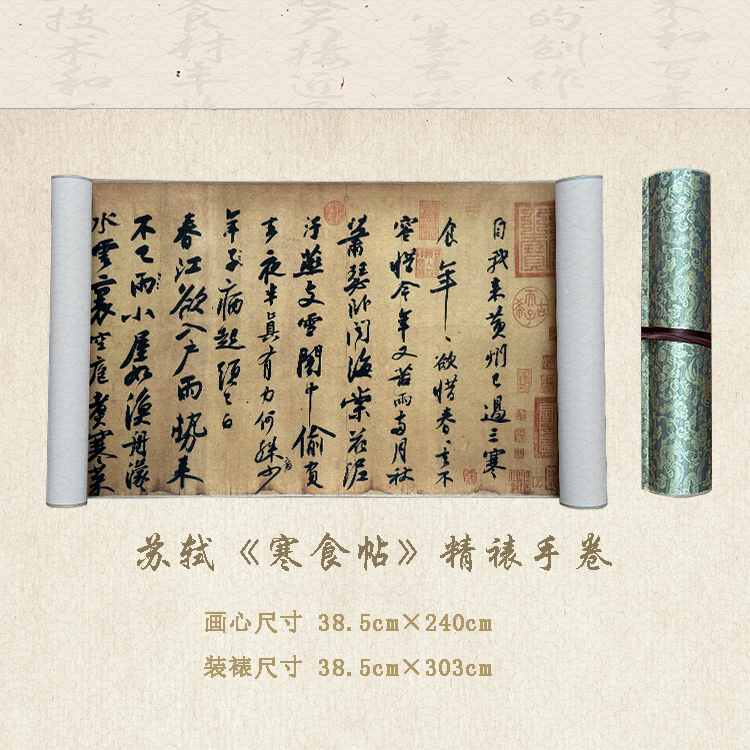 自我来黄州已過三寒
食年、欲惜春、去不
容惜今年又苦雨兩月秋
蕭瑟卧聞海棠花泥
汙燕支雪闇中偷負
去夜半真有力何殊少
年子病起頭已白
春江欲入户雨勢来
不已雨小屋如漁舟濛、
水雲裏空庖煮寒菜
苏轼《寒食帖》精裱手卷
画心尺寸 38.5cm×240cm
装裱尺寸 38.5cm×303cm